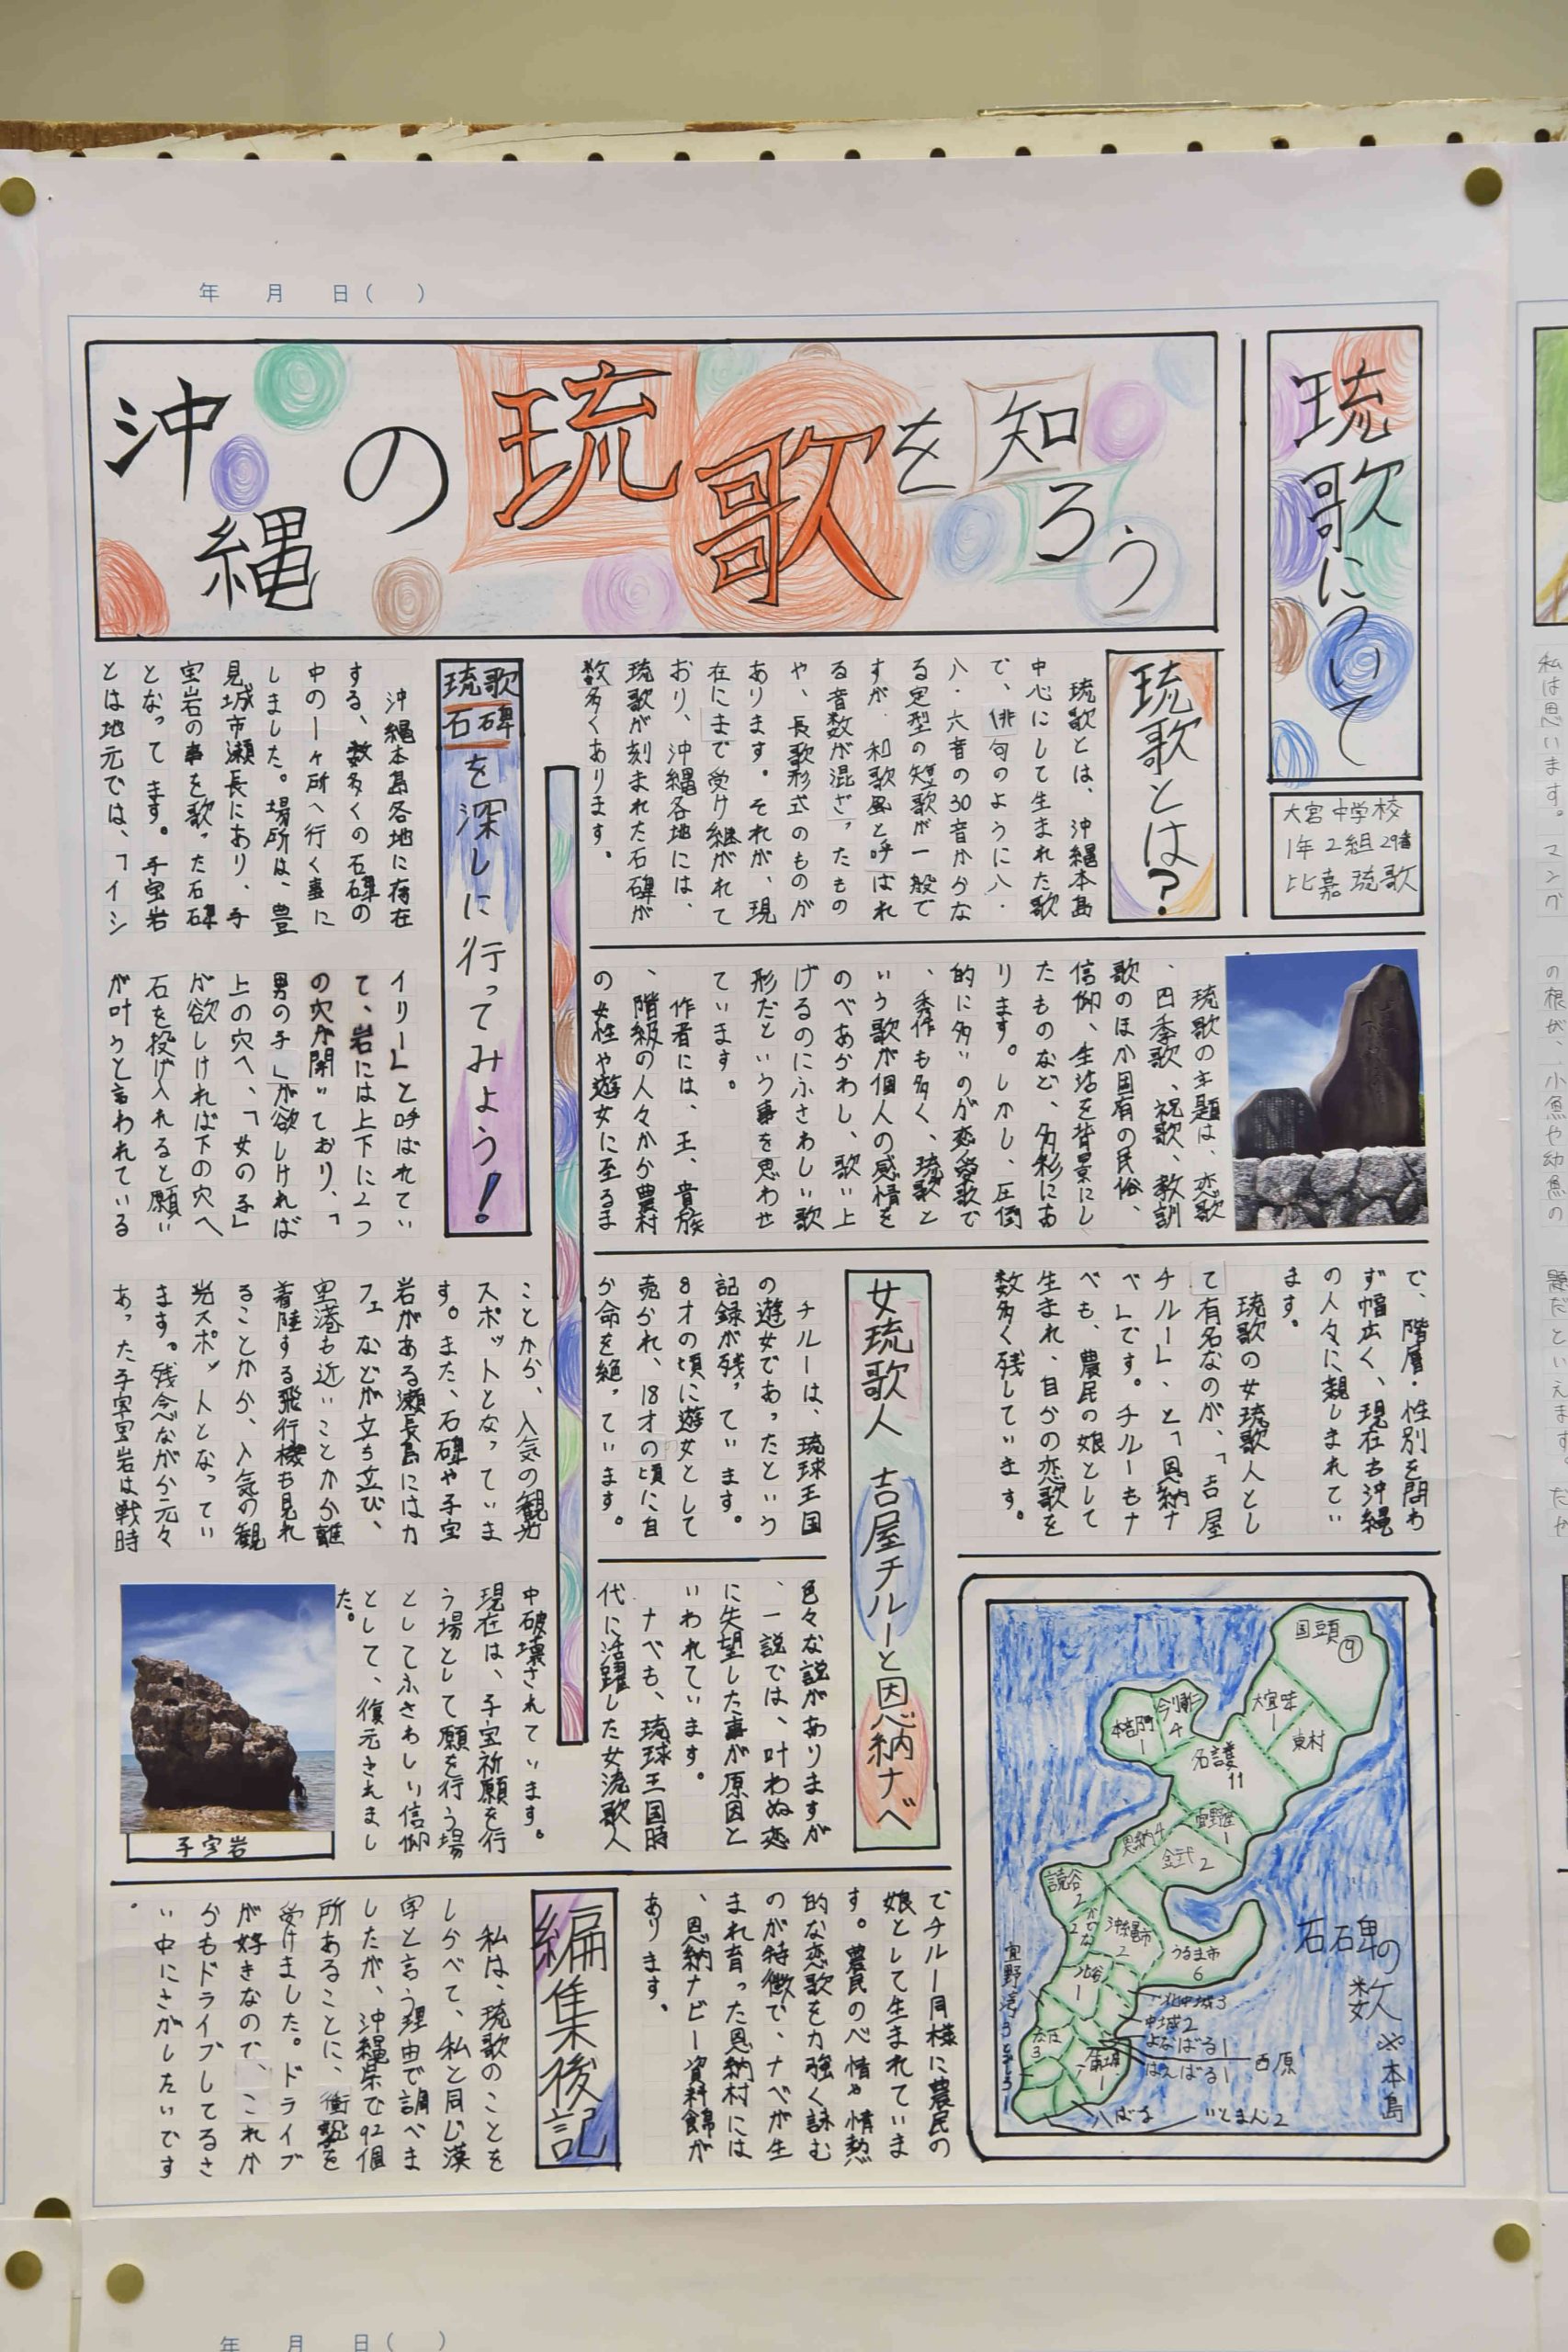 年 月 日( )
琉歌について
大宮中学校
1年2組29番
比嘉琉歌
沖縄の琉歌を知ろう
琉歌とは?
琉歌とは、沖縄本島
中心にして生まれた歌
で、俳句のように八・
八・六音の30音からな
る定型の短歌が一般で
すが、和歌風と呼ばれ
る音数が混ざったもの
や、長歌形式のものが
あります。それが、現
在にまで受け継がれて
おり、沖縄各地には、
琉歌が刻まれた石碑が
数多くあります。
琉歌の主題は、恋歌
、四季歌、祝歌、教訓
歌のほか固有の民俗、
信仰、生活を背景にし
たものなど、多彩にあ
ります。しかし、圧倒
的に多いのが恋愛歌で
、秀作も多く、琉歌と
いう歌が個人の感情を
のべあらわし、歌い上
げるのにふさわしい歌
形だという事を思わせ
ています。
作者には、王、貴族
、階級の人々から農村
の女性や遊女に至るま
で、階層・性別を問わ
ず幅広く、現在も沖縄
の人々に親しまれてい
ます。
琉歌の女琉歌人とし
て有名なのが、「吉屋
チルー」、と「恩納ナ
べ」です。チルーもナ
べも、農民の娘として
生まれ、自らの恋歌を
数多く残しています。
女琉歌人 吉屋チルーと恩納ナベ
チルーは、琉球王国
の遊女であったという
記録が残っています。
8才の頃に遊女として
売られ、18才の頃に自
ら命を絶っています。
色々な説がありますが
、一説では、叶わぬ恋
に失望した事が原因と
いわれています。
ナべも、琉球王国時
代に活躍した女流歌人
でチルー同様に農民の
娘として生まれていま
す。農民のべ情や情熱
的な恋歌を力強く詠む
のが特徴で、ナベが生
まれ育った恩納村には
、恩納ナビー資料館が
あります。
石碑の数
※本島
国頭⑨
大宜味1
東村
今帰仁4
本部1
名護11
宜野座1
恩納4
金武2
読谷2
かでな2
沖縄市2
うるま市6
北谷1
北中城3
中城2
よなばる1
はえばる1
西原
いとまん2
琉歌石碑を深しに行ってみよう!
沖縄本島各地に存在
する、数多くの石碑の
中の一ヶ所へ行く事に
しました。場所は、豊
見城市瀬長にあり、子
宝岩の事を歌った石碑
となってます。子宝岩
とは地元では、「イシ
イリー」と呼ばれてい
て、岩には上下に2つ
の穴が開いており、「
男の子」が欲しければ
上の穴へ、「女の子」
が欲しければ下の穴へ
石を投げ入れると願い
が叶うと言われている
ことから、人気の観光
スポットとなっていま
す。また、石碑や子宝
岩がある瀬長島にはカ
フェなどが立ち並び、
空港も近いことから離
着陸する飛行機も見れ
ることから、人気の観
光スポットとなってい
ます。残念ながら元々
あった子宝岩は戦時
中破壊されています。
現在は、子宝祈願を行
う場として願を行う場
としてふさわしい信仰
として、復元されまし
た。
子宝岩
編集後記
私は、琉歌のことを
しらべて、私と同じ漢
字と言う理由で調べま
したが、沖縄県で92個
所あることに、衝撃を
受けました。ドライブ
が好きなので、これか
らもドライブしてるさ
い中にさがしたいです
。